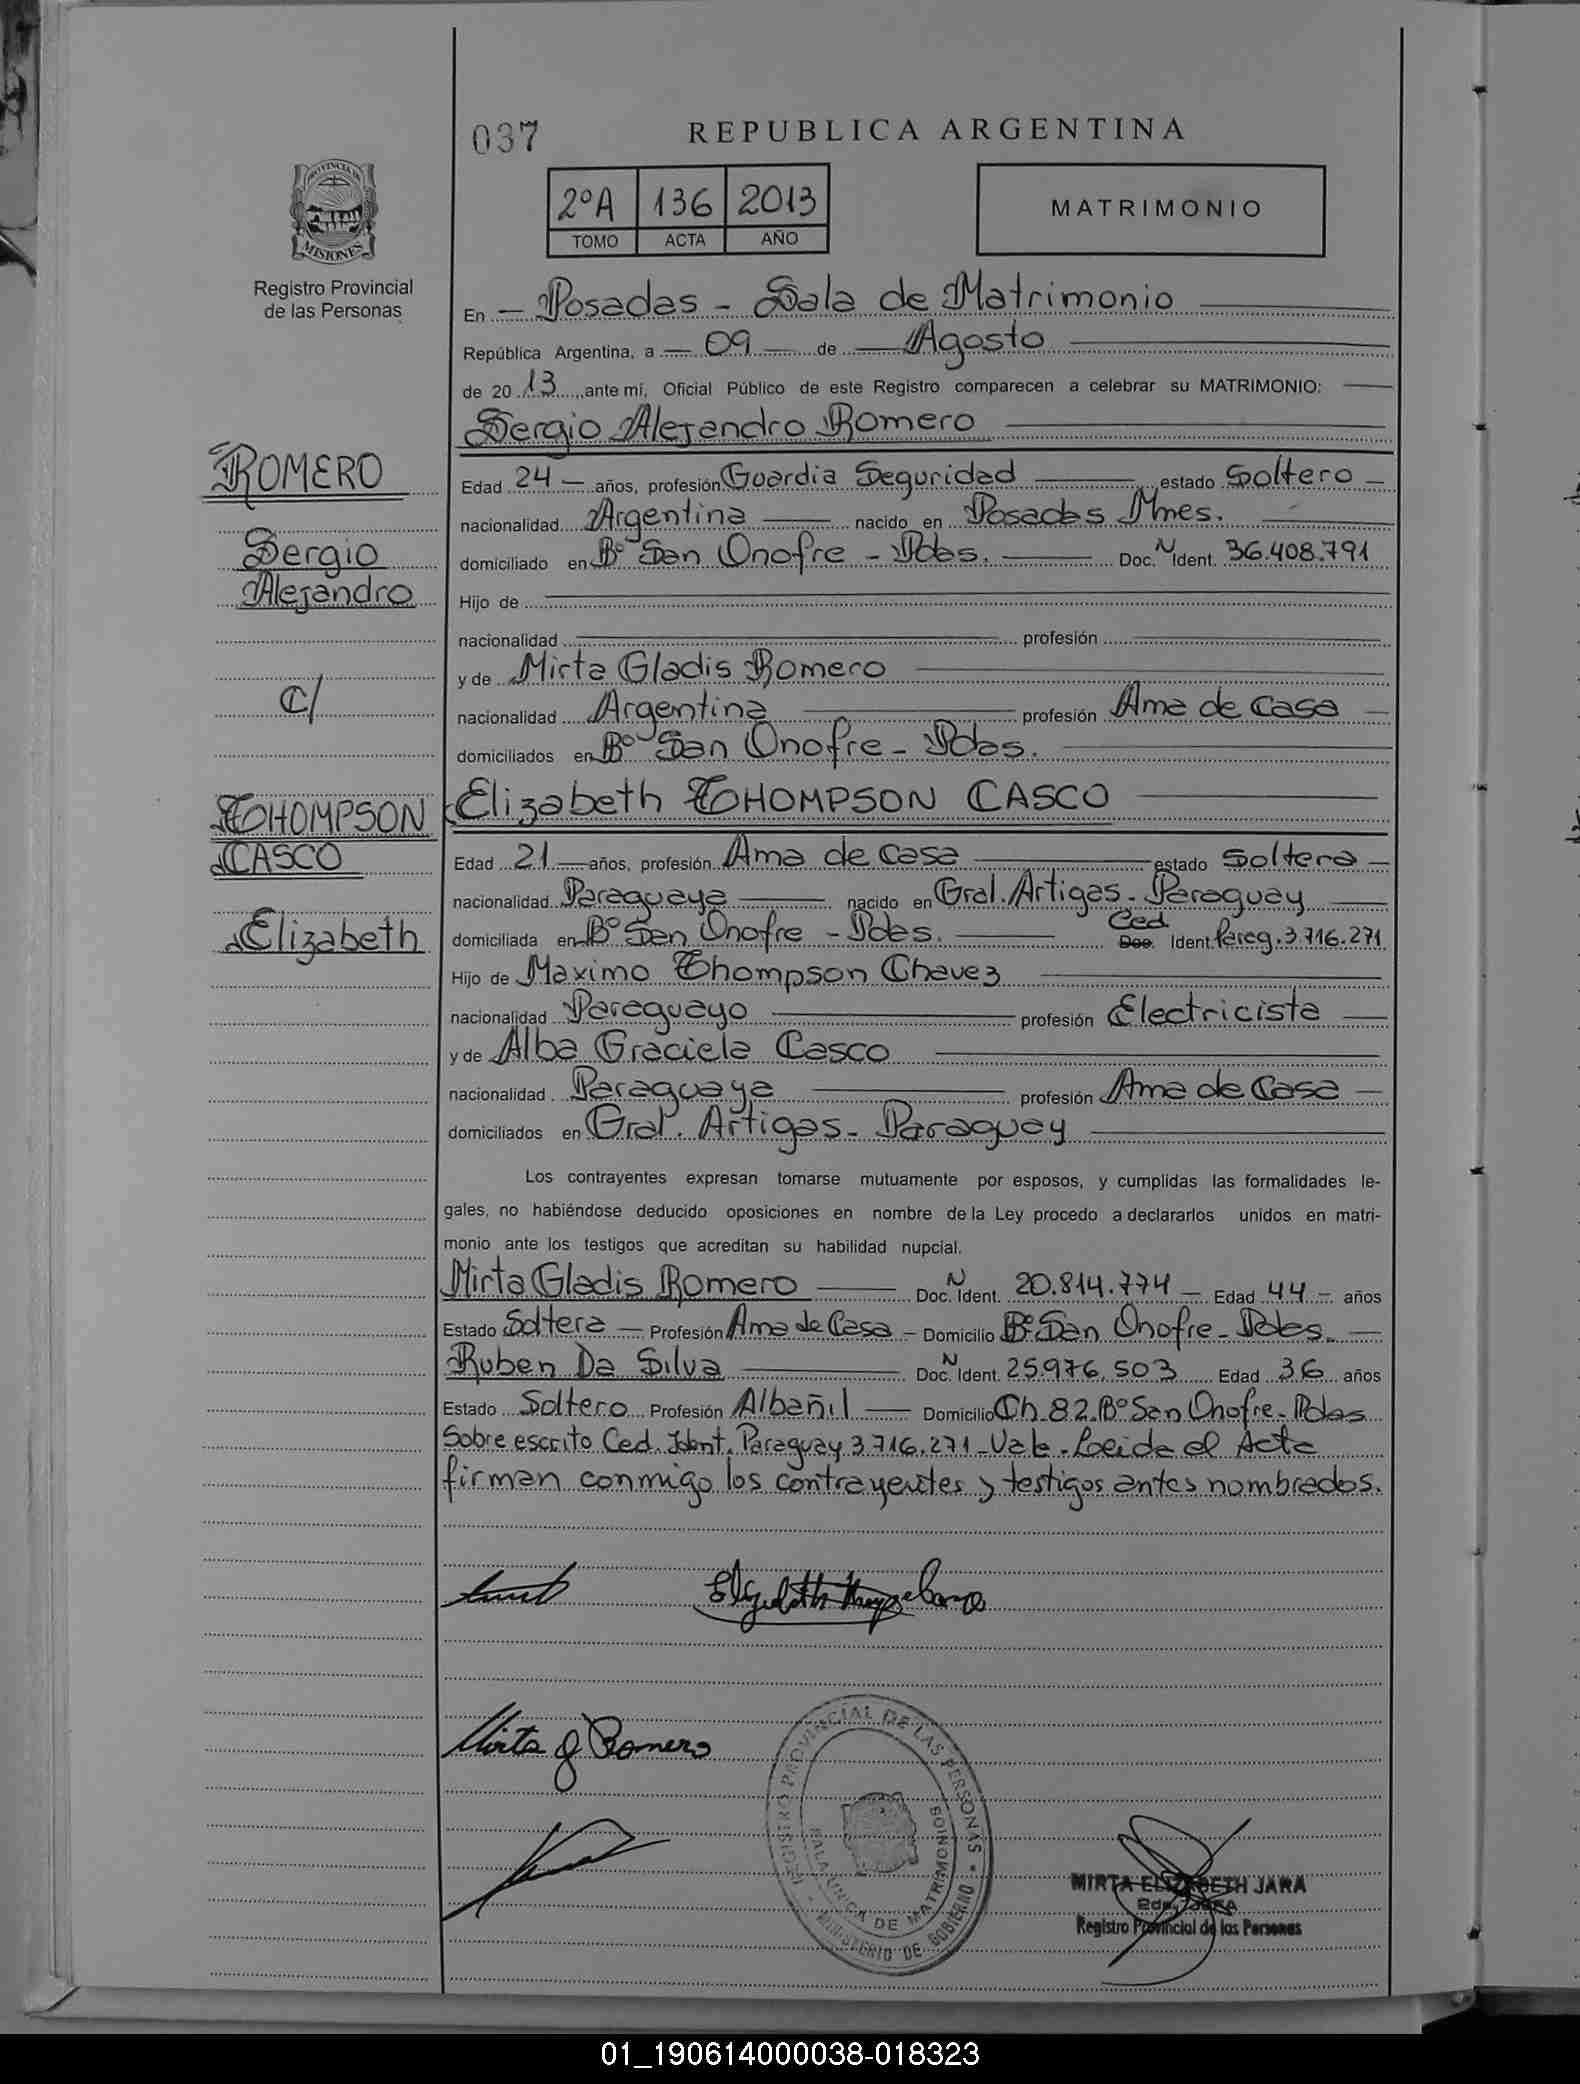 037
REPUBLICA ARGENTINA
2ºA 136 2013
TOMO ACTA AÑO
MATRIMONIO
PROVINCIA DE
MISIONES
Registro Provincial
de las Personas
En Posadas - Sala de Matrimonio
República Argentina, a 09 de Agosto
de 2013, ante mí, Oficial Público de este Registro comparecen a celebrar su MATRIMONIO:
Sergio Alejandro Romero
ROMERO
Sergio
Alejandro
C/
THOMPSON
CASCO
Elizabeth
Edad 24 años, profesión Guardia Seguridad estado Soltero
nacionalidad Argentina nacido en Posadas Mnes.
domiciliado en Bº San Onofre - Pdas. Doc. N Ident. 36.408.791
Hijo de
nacionalidad profesión
y de Mirta Gladis Romero
nacionalidad Argentina profesión Ama de Casa
domiciliados en Bº San Onofre - Pdas.
Elizabeth THOMPSON CASCO
Edad 21 años, profesión Ama de Casa estado Soltera
nacionalidad Paraguaya nacido en Gral. Artigas - Paraguay
domiciliada en Bº San Onofre - Pdas. Ced. Doc. Ident. Parag. 3.716.271
Hijo de Maximo Thompson Chavez
nacionalidad Paraguayo profesión Electricista
y de Alba Graciela Casco
nacionalidad Paraguaya profesión Ama de Casa
domiciliados en Gral. Artigas - Paraguay
Los contrayentes expresan tomarse mutuamente por esposos, y cumplidas las formalidades le-
gales, no habiéndose deducido oposiciones en nombre de la Ley procedo a declararlos unidos en matri-
monio ante los testigos que acreditan su habilidad nupcial.
Mirta Gladis Romero Doc. N Ident. 20.814.774 Edad 44 años
Estado Soltera Profesión Ama de Casa - Domicilio Bº San Onofre - Pdas.
Ruben Da Silva Doc. N Ident. 25.976.503 Edad 36 años
Estado Soltero Profesión Albañil Domicilio Ch. 82. Bº San Onofre - Pdas
Sobre escrito Ced. Ident. Paraguay 3.716.271 - Vale. Leida el Acta
firman conmigo los contrayentes y testigos antes nombrados.
Mirta G Romero
REGISTRO PROVINCIAL DE LAS PERSONAS
SALA UNICA DE MATRIMONIOS
MINISTERIO DE GOBIERNO
MIRTA ELIZABETH JARA
2da. JEFA
Registro Provincial de las Personas
01_190614000038-018323